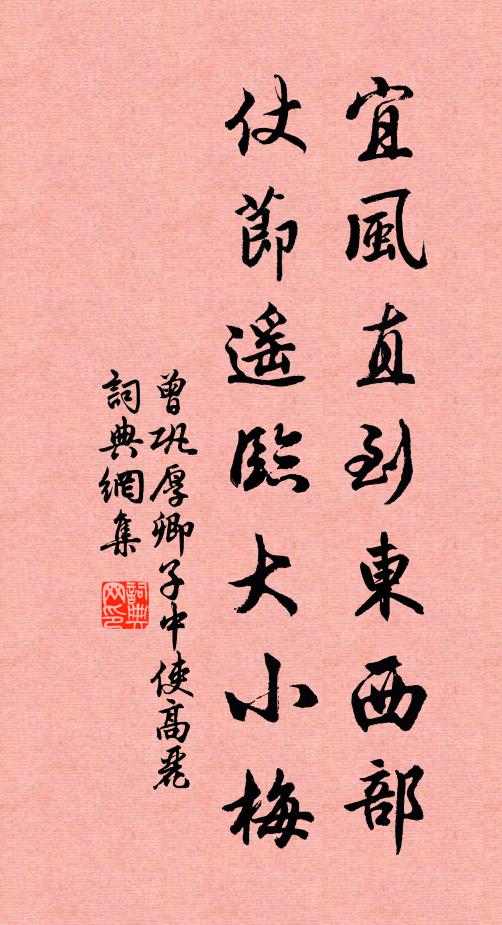 宜風直到東西部
仗節遥臨大小梅
曾巩厚卿子中使高麗
詞典網集
詞典
网印